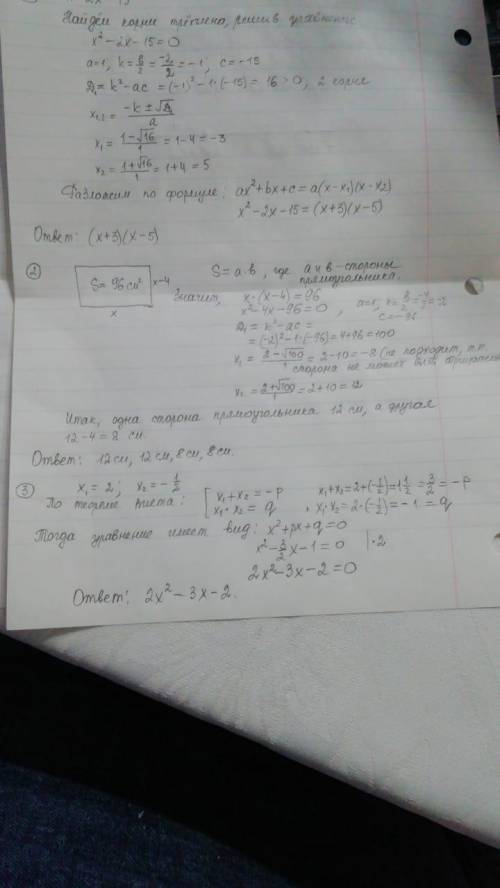 Найдём корни трёхчлена, решив уравнение
x² - 2x - 15 = 0
a=1, k = b/2 = -2/2 = -1, c = -15
D₁ = k² - ac = (-1)² - 1·(-15) = 16 > 0, 2 корня
x₁,₂ = (-k ± √D₁)/a
x₁ = (1-√16)/1 = 1-4 = -3
x₂ = (1+√16)/1 = 1+4 = 5
Разложим по формуле: ax²+bx+c = a(x-x₁)(x-x₂)
x² - 2x - 15 = (x+3)(x-5)
Ответ: (x+3)(x-5)
② S = 96 см² x-4 S = a·b, где a и b - стороны
прямоугольника.
x Значит, x·(x-4) = 96
x² - 4x - 96 = 0, a=1, k = b/2 = -4/2 = -2
c = -96
D₁ = k² - ac =
= (-2)² - 1·(-96) = 4+96 = 100
x₁ = (2-√100)/1 = 2-10 = -8 (не подходит, т.к.
сторона не может быть
x₂ = (2+√100)/1 = 2+10 = 12
Итак, одна сторона прямоугольника 12 см, а другая
12-4 = 8 см.
Ответ: 12 см, 12 см, 8 см, 8 см.
③ x₁ = 2; x₂ = -1/2
По теореме Виета: [ x₁+x₂ = -p x₁+x₂ = 2+(-1/2) = 1 1/2 = 3/2 = -p
x₁·x₂ = q, x₁·x₂ = 2·(-1/2) = -1 = q
Тогда уравнение имеет вид: x²+px+q=0
x² - 3/2x - 1 = 0 |·2
2x² - 3x - 2 = 0
Ответ: 2x² - 3x - 2.